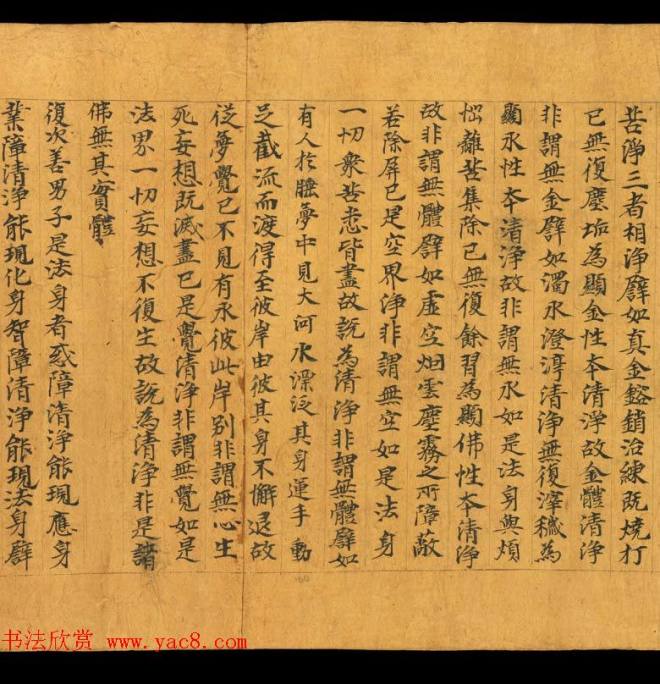 苦淨三者相淨譬如真金鎔銷治練既燒打
已無復塵垢為顯金性本清淨故金體清淨
非謂無金譬如濁水澄渟清淨無復滓穢為
顯水性本清淨故非謂無水如是法身與煩
惱離苦集除已無復餘習為顯佛性本清淨
故非謂無體譬如虛空烟雲塵霧之所障蔽
若除屏已是空界淨非謂無空如是法身
一切衆苦悉皆盡故說為清淨非謂無體譬如
有人於睡夢中見大河水漂泛其身運手動
足截流而渡得至彼岸由彼其身不懈退故
從夢覺已不見有水彼此岸別非謂無心生
死妄想既滅盡已是覺清淨非謂無覺如是
法界一切妄想不復生故說為清淨非是諸
佛無其實體
復次善男子是法身者惑障清淨能現應身
業障清淨能現化身智障清淨能現法身譬
书法欣赏 www.yac8.com